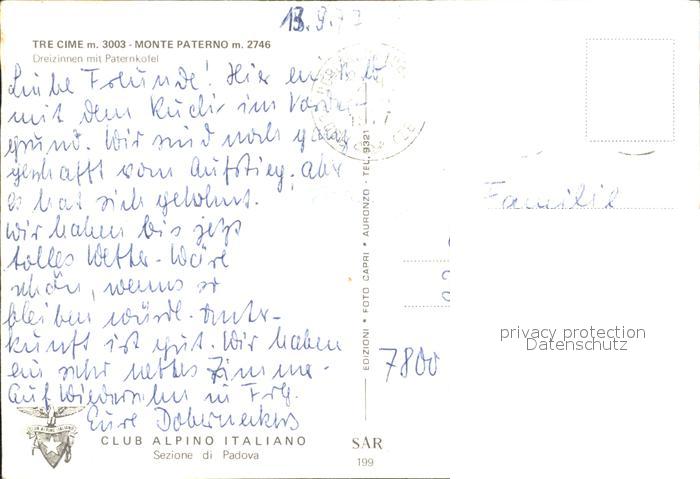 13.9.77
TRE CIME m. 3003 - MONTE PATERNO m. 2746
Dreizinnen mit Paternkofel
Liebe Freunde! Hier ein Bild
mit dem Kuchr im Vorder-
grund. Wir sind noch ganz
geschafft vom Aufstieg, aber
es hat sich gelohnt.
Wir haben bis jetzt
tolles Wetter - Wäre
schön, wenns so
bleiben würde. Unter-
kunft ist gut. Wir haben
ein sehr nettes Zimmer.
Auf Wiedersehn in Frbg.
Eure
CLUB ALPINO ITALIANO
Sezione di Padova
EDIZIONI * FOTO CAPRI * AURONZO - TEL. 9321
SAR
199
Familie
7800
privacy protection
Datenschutz